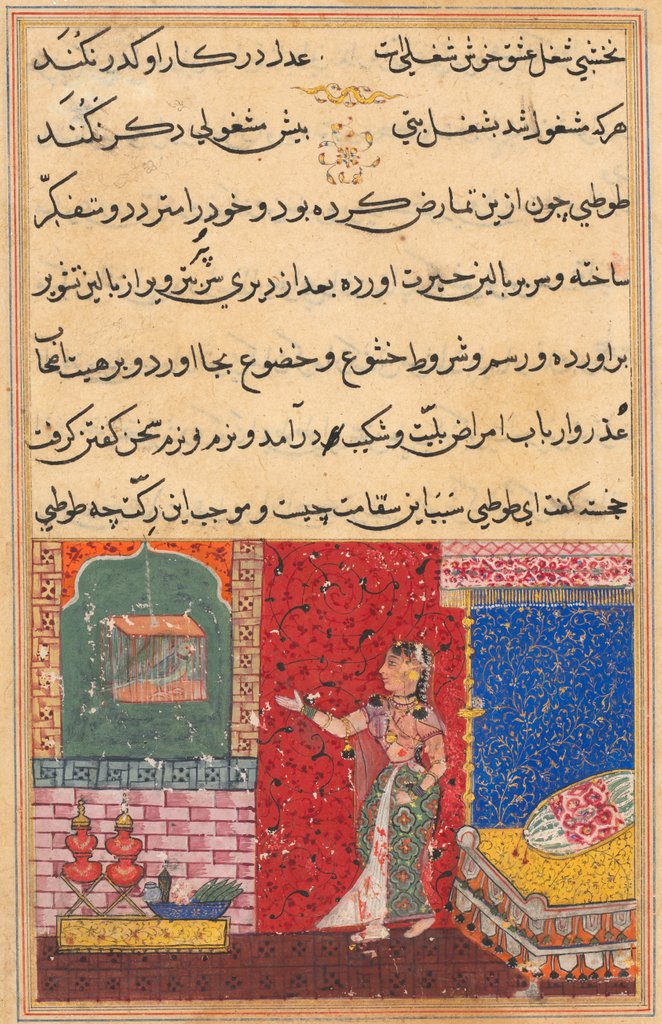 نخشبي شغل عشق خوش شغلي است عدل در کار او کدر نکند
هرکه مشغول شد بشغل بتي بیش مشغولي دکر نکند
طوطي چون از ین تمارض کرده بود و خود را متردد و متفکر
ساخته و سر بر بالین حیرت اورده بعد از دیري سر از بالین تشویر
براورده و رسم و شروط خشوع و خضوع بجا اورد و بر هیت اصحاب
عذر وارباب امراض بلیّت و شکیب درآمد و نرم و نرم سخن کفتن کرفت
خجسته کفت اي طوطي سبب این سقامت چیست و موجب این رکّت چه طوطي